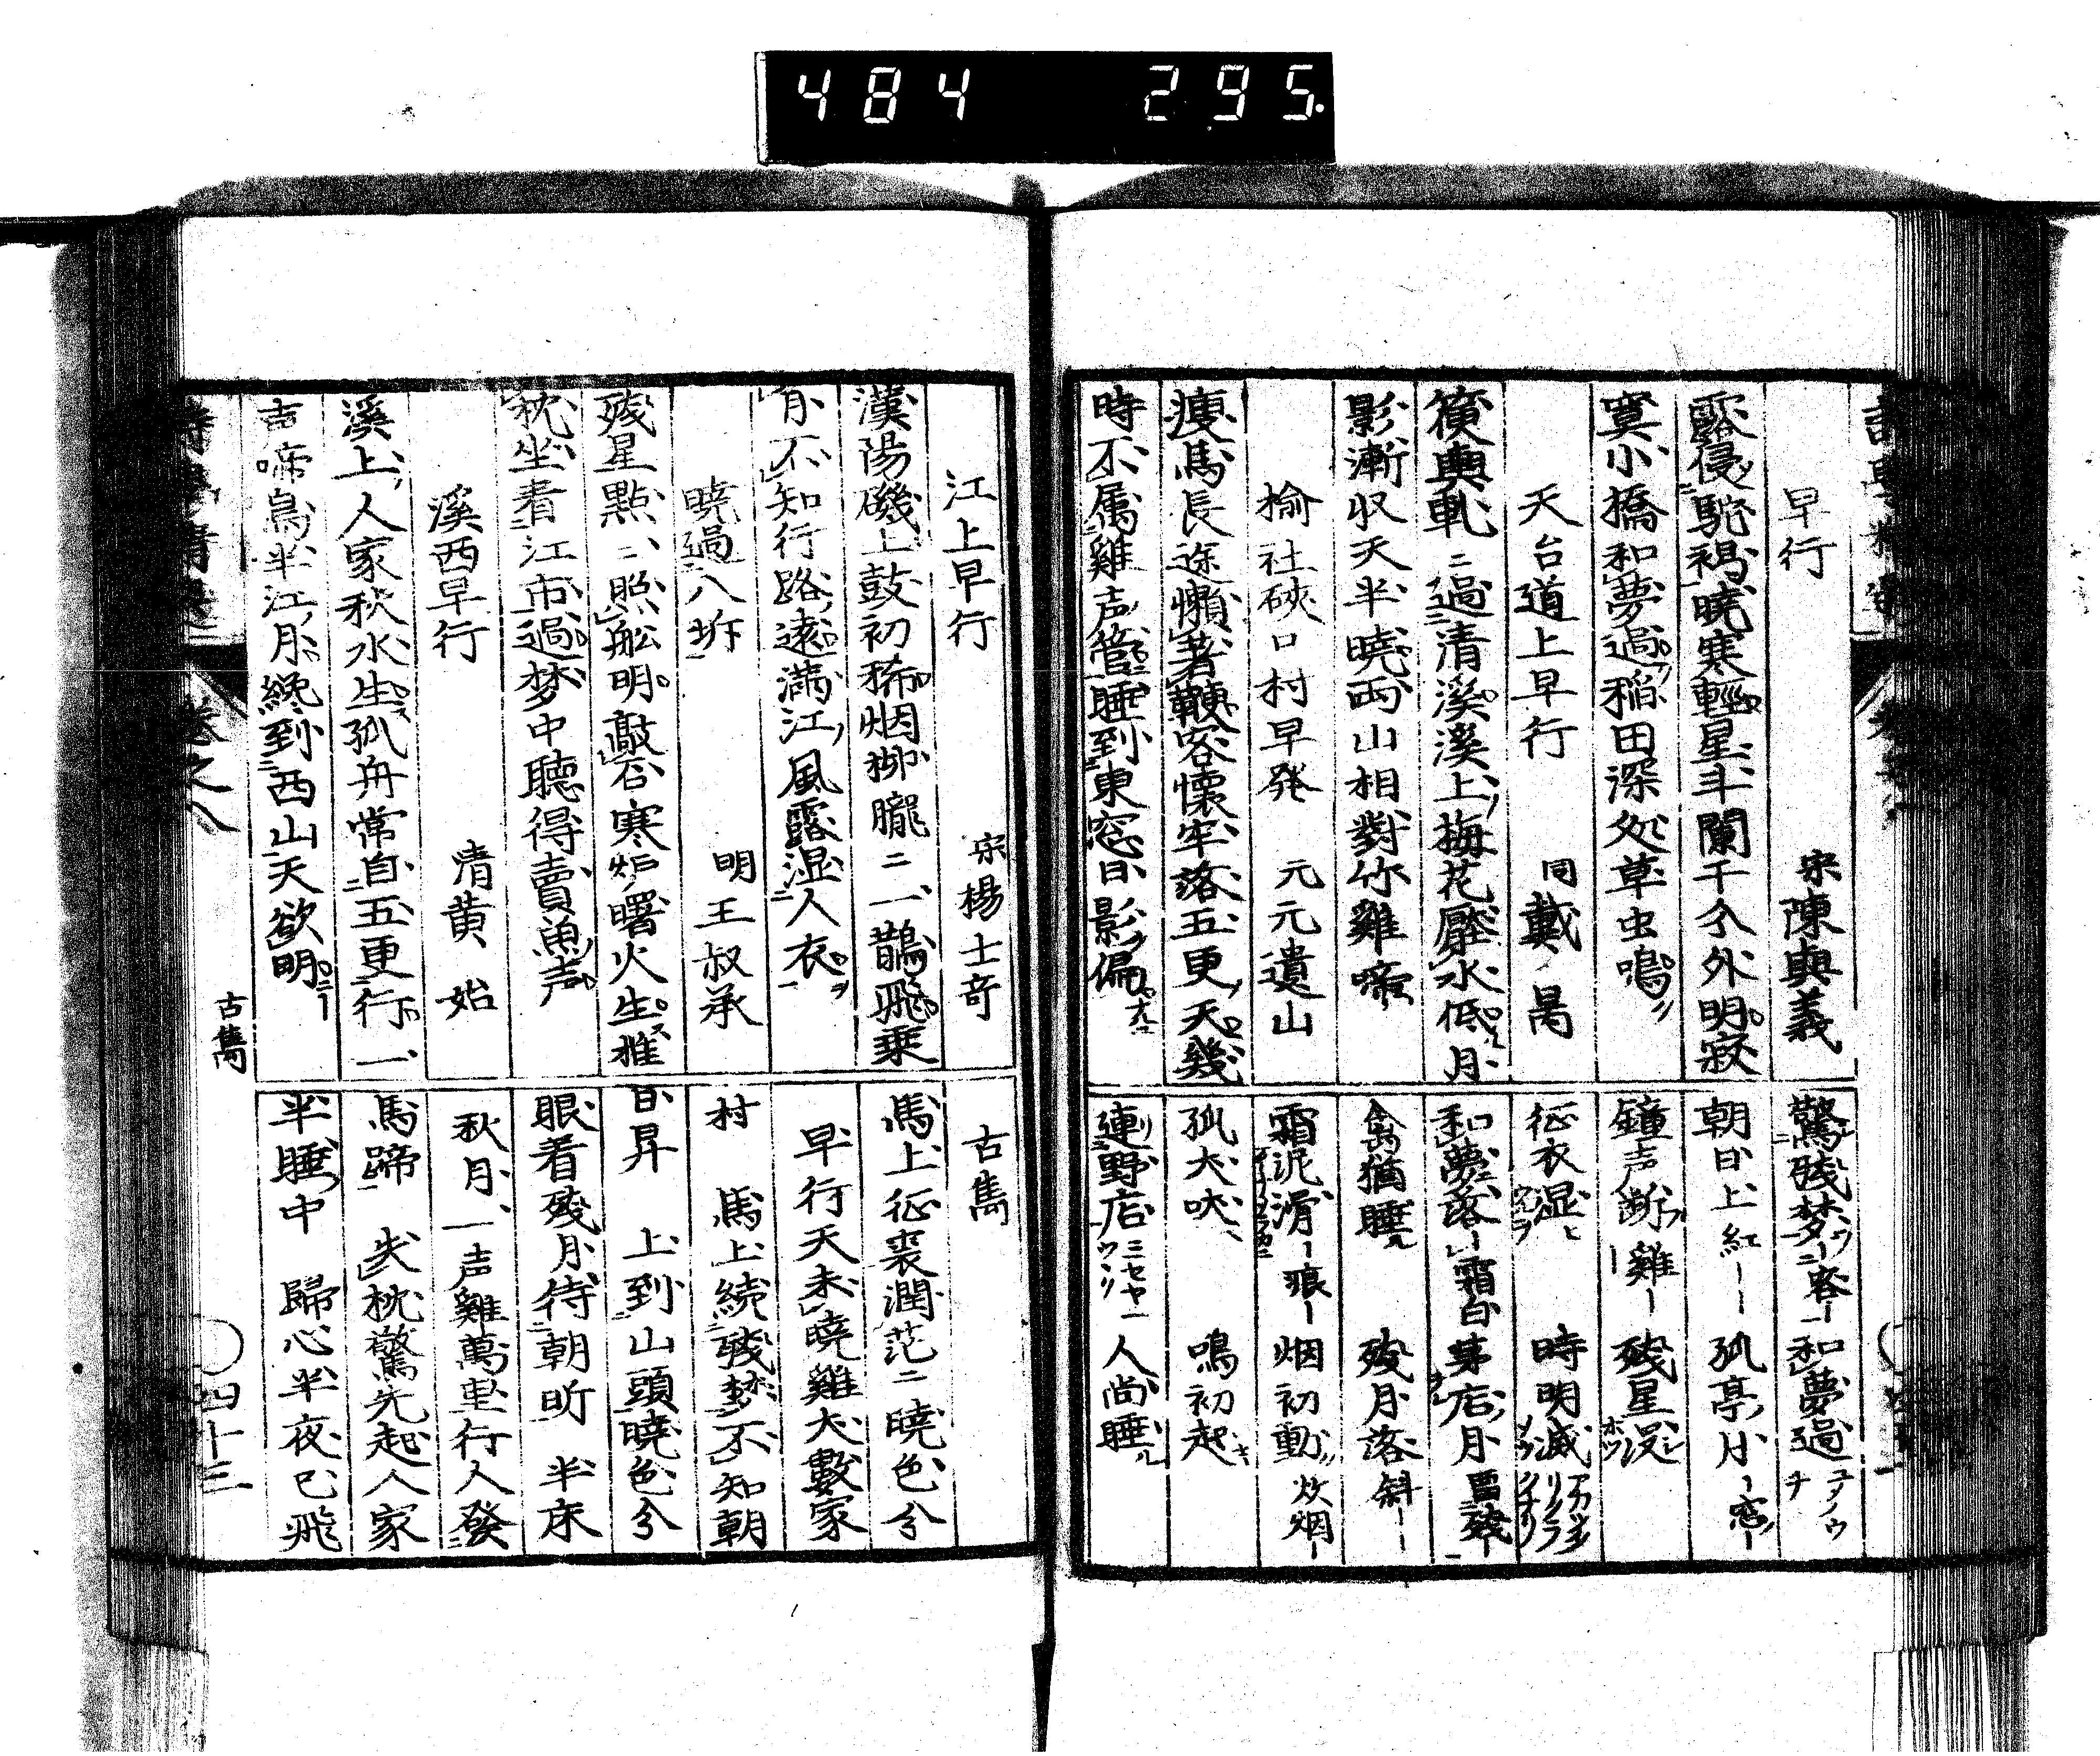 484 295.
早行 宋陳與義
露侵駝褐曉寒輕星斗闌干分外明寂
寞小橋和夢過稲田深処草虫鳴
天台道上早行 同戴昺
篗輿軋〻過清溪溪上梅花壓水低月
影漸収天半曉両山相對竹雞啼
榆社硤口村早発 元元遺山
痩馬長途懶著鞭客懷牢落五更天幾
時不属雞声管睡到東窓日影偏
驚残梦 客 和夢過
朝日上紅 孤亭小 窓
鐘声断 雞 残星没
征衣湿 時明滅
和夢落 霜白茅店月 畱残
禽猶睡 残月落 斜
霜泥滑 痕 烟初動 炊烟
孤犬吠 鳴初起
連野店 人尚睡
江上早行 宋楊士奇
漢陽磯上鼓初稀烟柳朧〻一鵲飛乗
月不知行路遠満江風露湿人衣
曉過八坼 明王叔承
残星點〻照舩明敲石寒炉曙火生推
枕坐看江市過梦中聴得賣魚声
溪西早行 清黄始
溪上人家秋水生孤舟常自五更行一
声啼鳥半江月纔到西山天欲明
古雋
馬上征裘潤茫〻曉色分
早行天未曉雞犬數家
村 馬上続残梦不知朝
日昇 上到山頭曉色分
眼看残月待朝昕 半床
秋月一声雞萬里行人發
馬蹄 欹枕驚先起人家
半睡中 歸心半夜已飛
卷之八
古雋
四十三